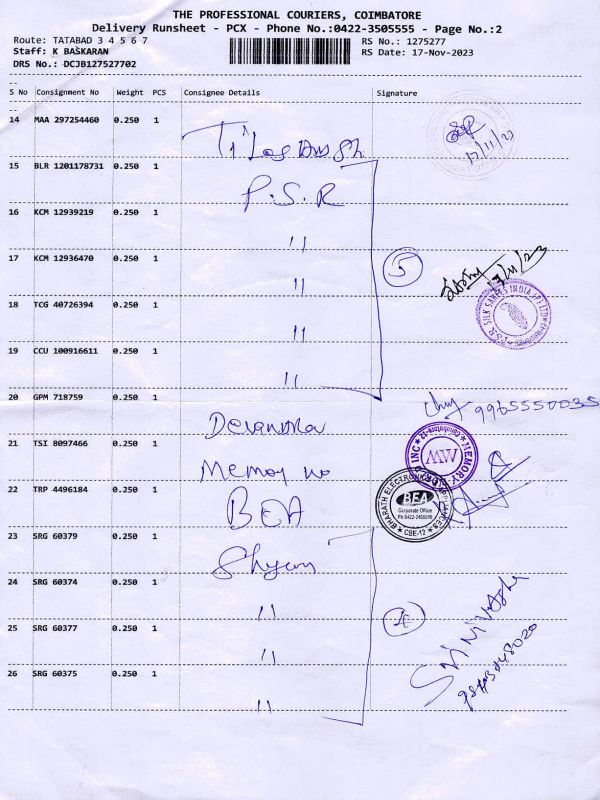 THE PROFESSIONAL COURIERS, COIMBATORE
Delivery Runsheet - PCX - Phone No.:0422-3505555 - Page No.:2
Route: TATABAD 3 4 5 6 7
RS No.: 1275277
Staff: K BASKARAN
RS Date: 17-Nov-2023
DRS No.: DCJB127527702
S No Consignment No Weight PCS Consignee Details Signature
14 MAA 297254460 0.250 1
17/11/23
15 BLR 1201178731 0.250 1 P.S.R
16 KCM 12939219 0.250 1 "
17 KCM 12936470 0.250 1 " 5 17/11/23
18 TCG 40726394 0.250 1 "
P.S.R SILK SAREES INDIA (P) LTD
19 CCU 100916611 0.250 1 "
20 GPM 718759 0.250 1 9965550035
21 TSI 8097466 0.250 1 Memory
MEMORY INC
22 TRP 4496184 0.250 1 BEA
BHARATH ELECTRONICS
BEA
Corporate Office
CBE-12
23 SRG 60379 0.250 1 Shyam
24 SRG 60374 0.250 1 " 4
25 SRG 60377 0.250 1 "
26 SRG 60375 0.250 1 "